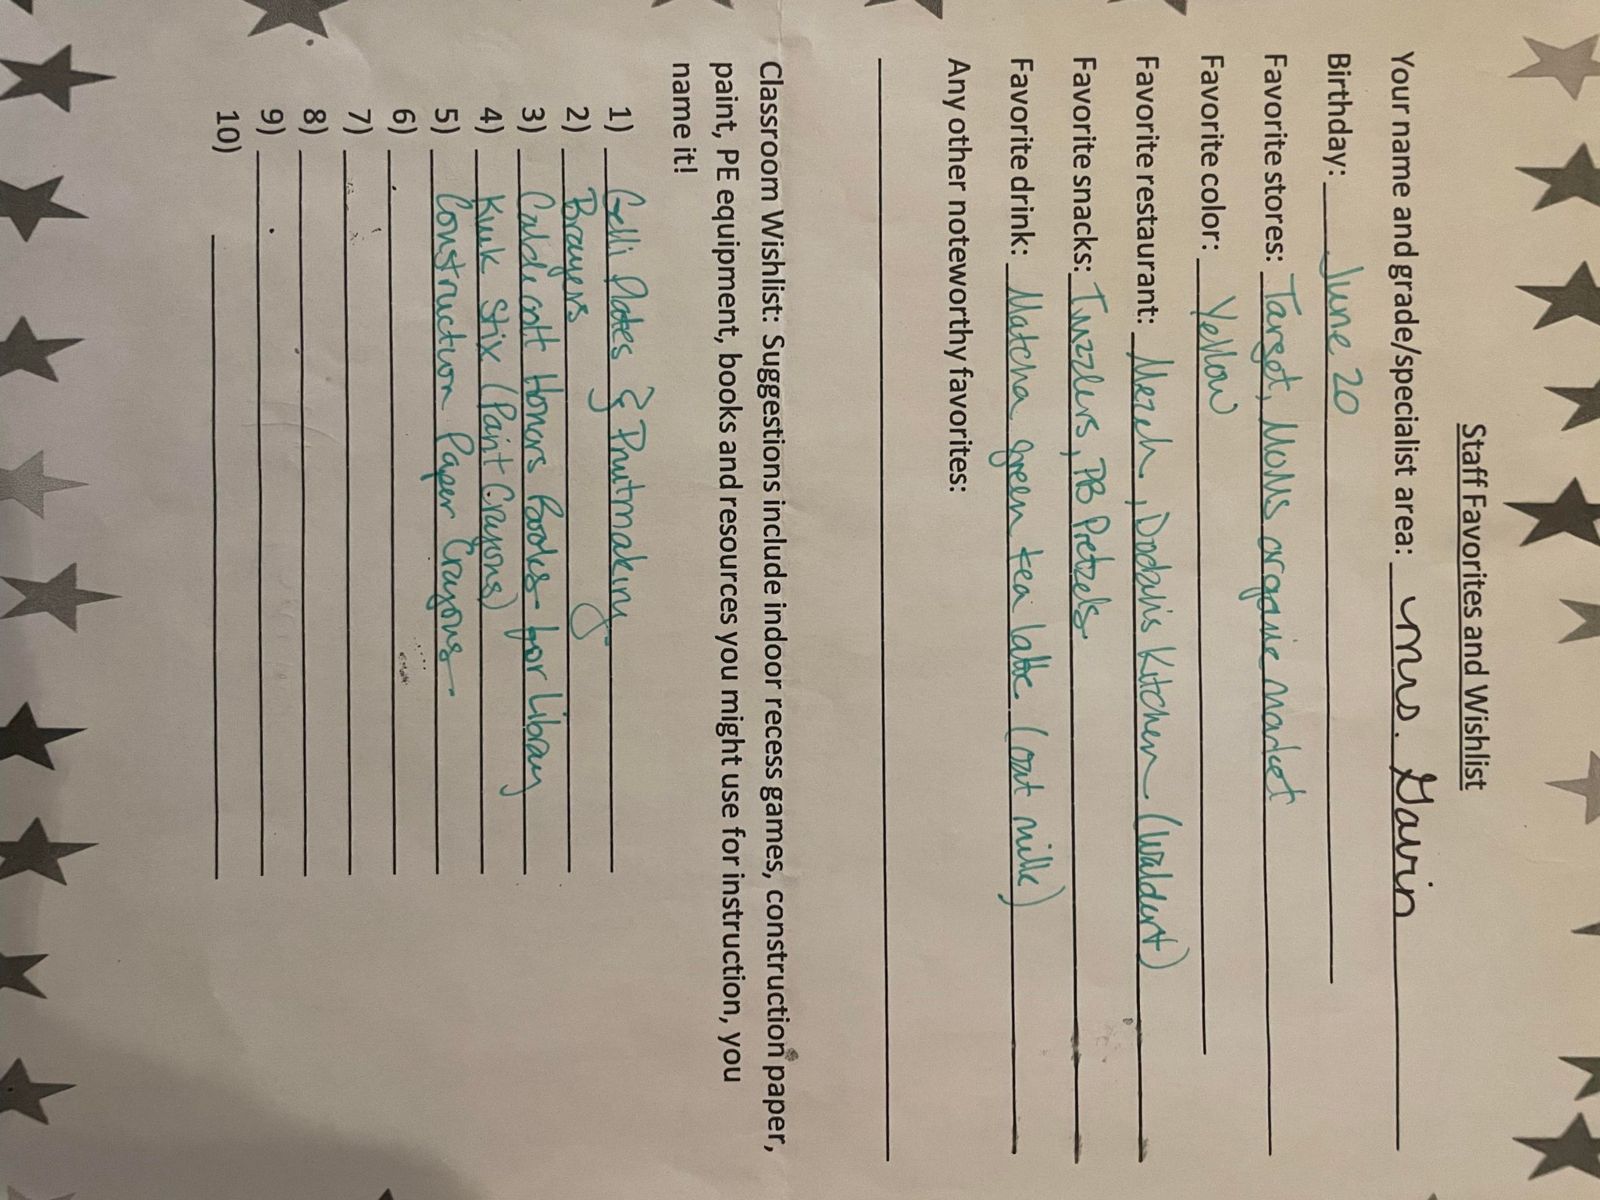 Staff Favorites and Wishlist
Your name and grade/specialist area: Mrs. Gavin
Birthday: June 20
Favorite stores: Target, MOMs organic market
Favorite color: Yellow
Favorite restaurant: Mezeh, Dodah's Kitchen (Waldorf)
Favorite snacks: Twizzlers, PB Pretzels
Favorite drink: Matcha green tea latte (oat milk)
Any other noteworthy favorites:
Classroom Wishlist: Suggestions include indoor recess games, construction paper,
paint, PE equipment, books and resources you might use for instruction, you
name it!
1) Gelli Plates & Printmaking
2) Brayers
3) Caldecott Honors Books - for Library
4) Kwik Stix (Paint Crayons)
5) Construction Paper Crayons
6)
7)
8)
9)
10)